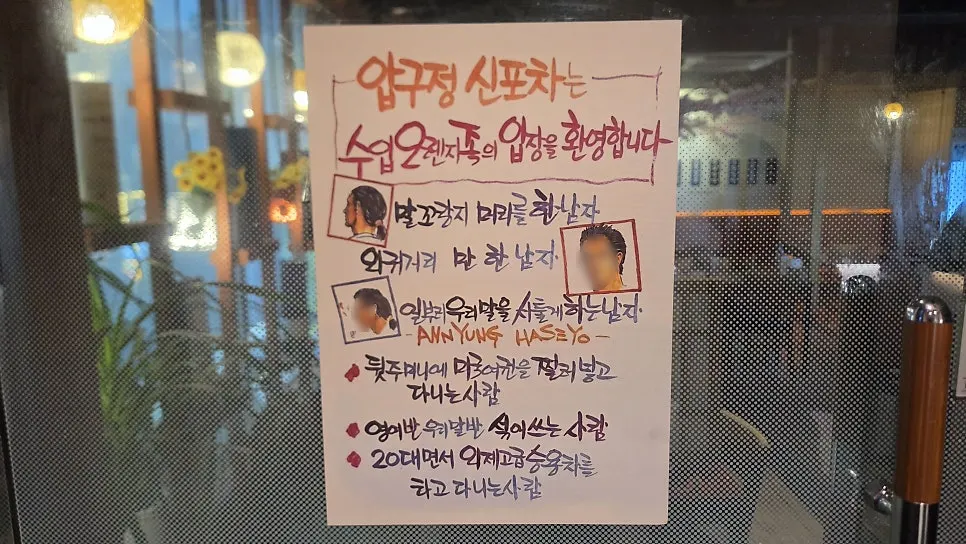 압구정 신포차는
수입 오렌지족의 입장을 환영합니다
말꼬랑지 머리를 한 남자
와귀거리 만 한 남자.
일부러 우리말을 서툴게 하는 남자.
- ANNYUNG HASEYO -
뒷주머니에 미국여권을 찔러 넣고
다니는 사람
영어반 우리말반 섞어쓰는 사람
20대면서 외제고급승용차를
타고 다니는 사람